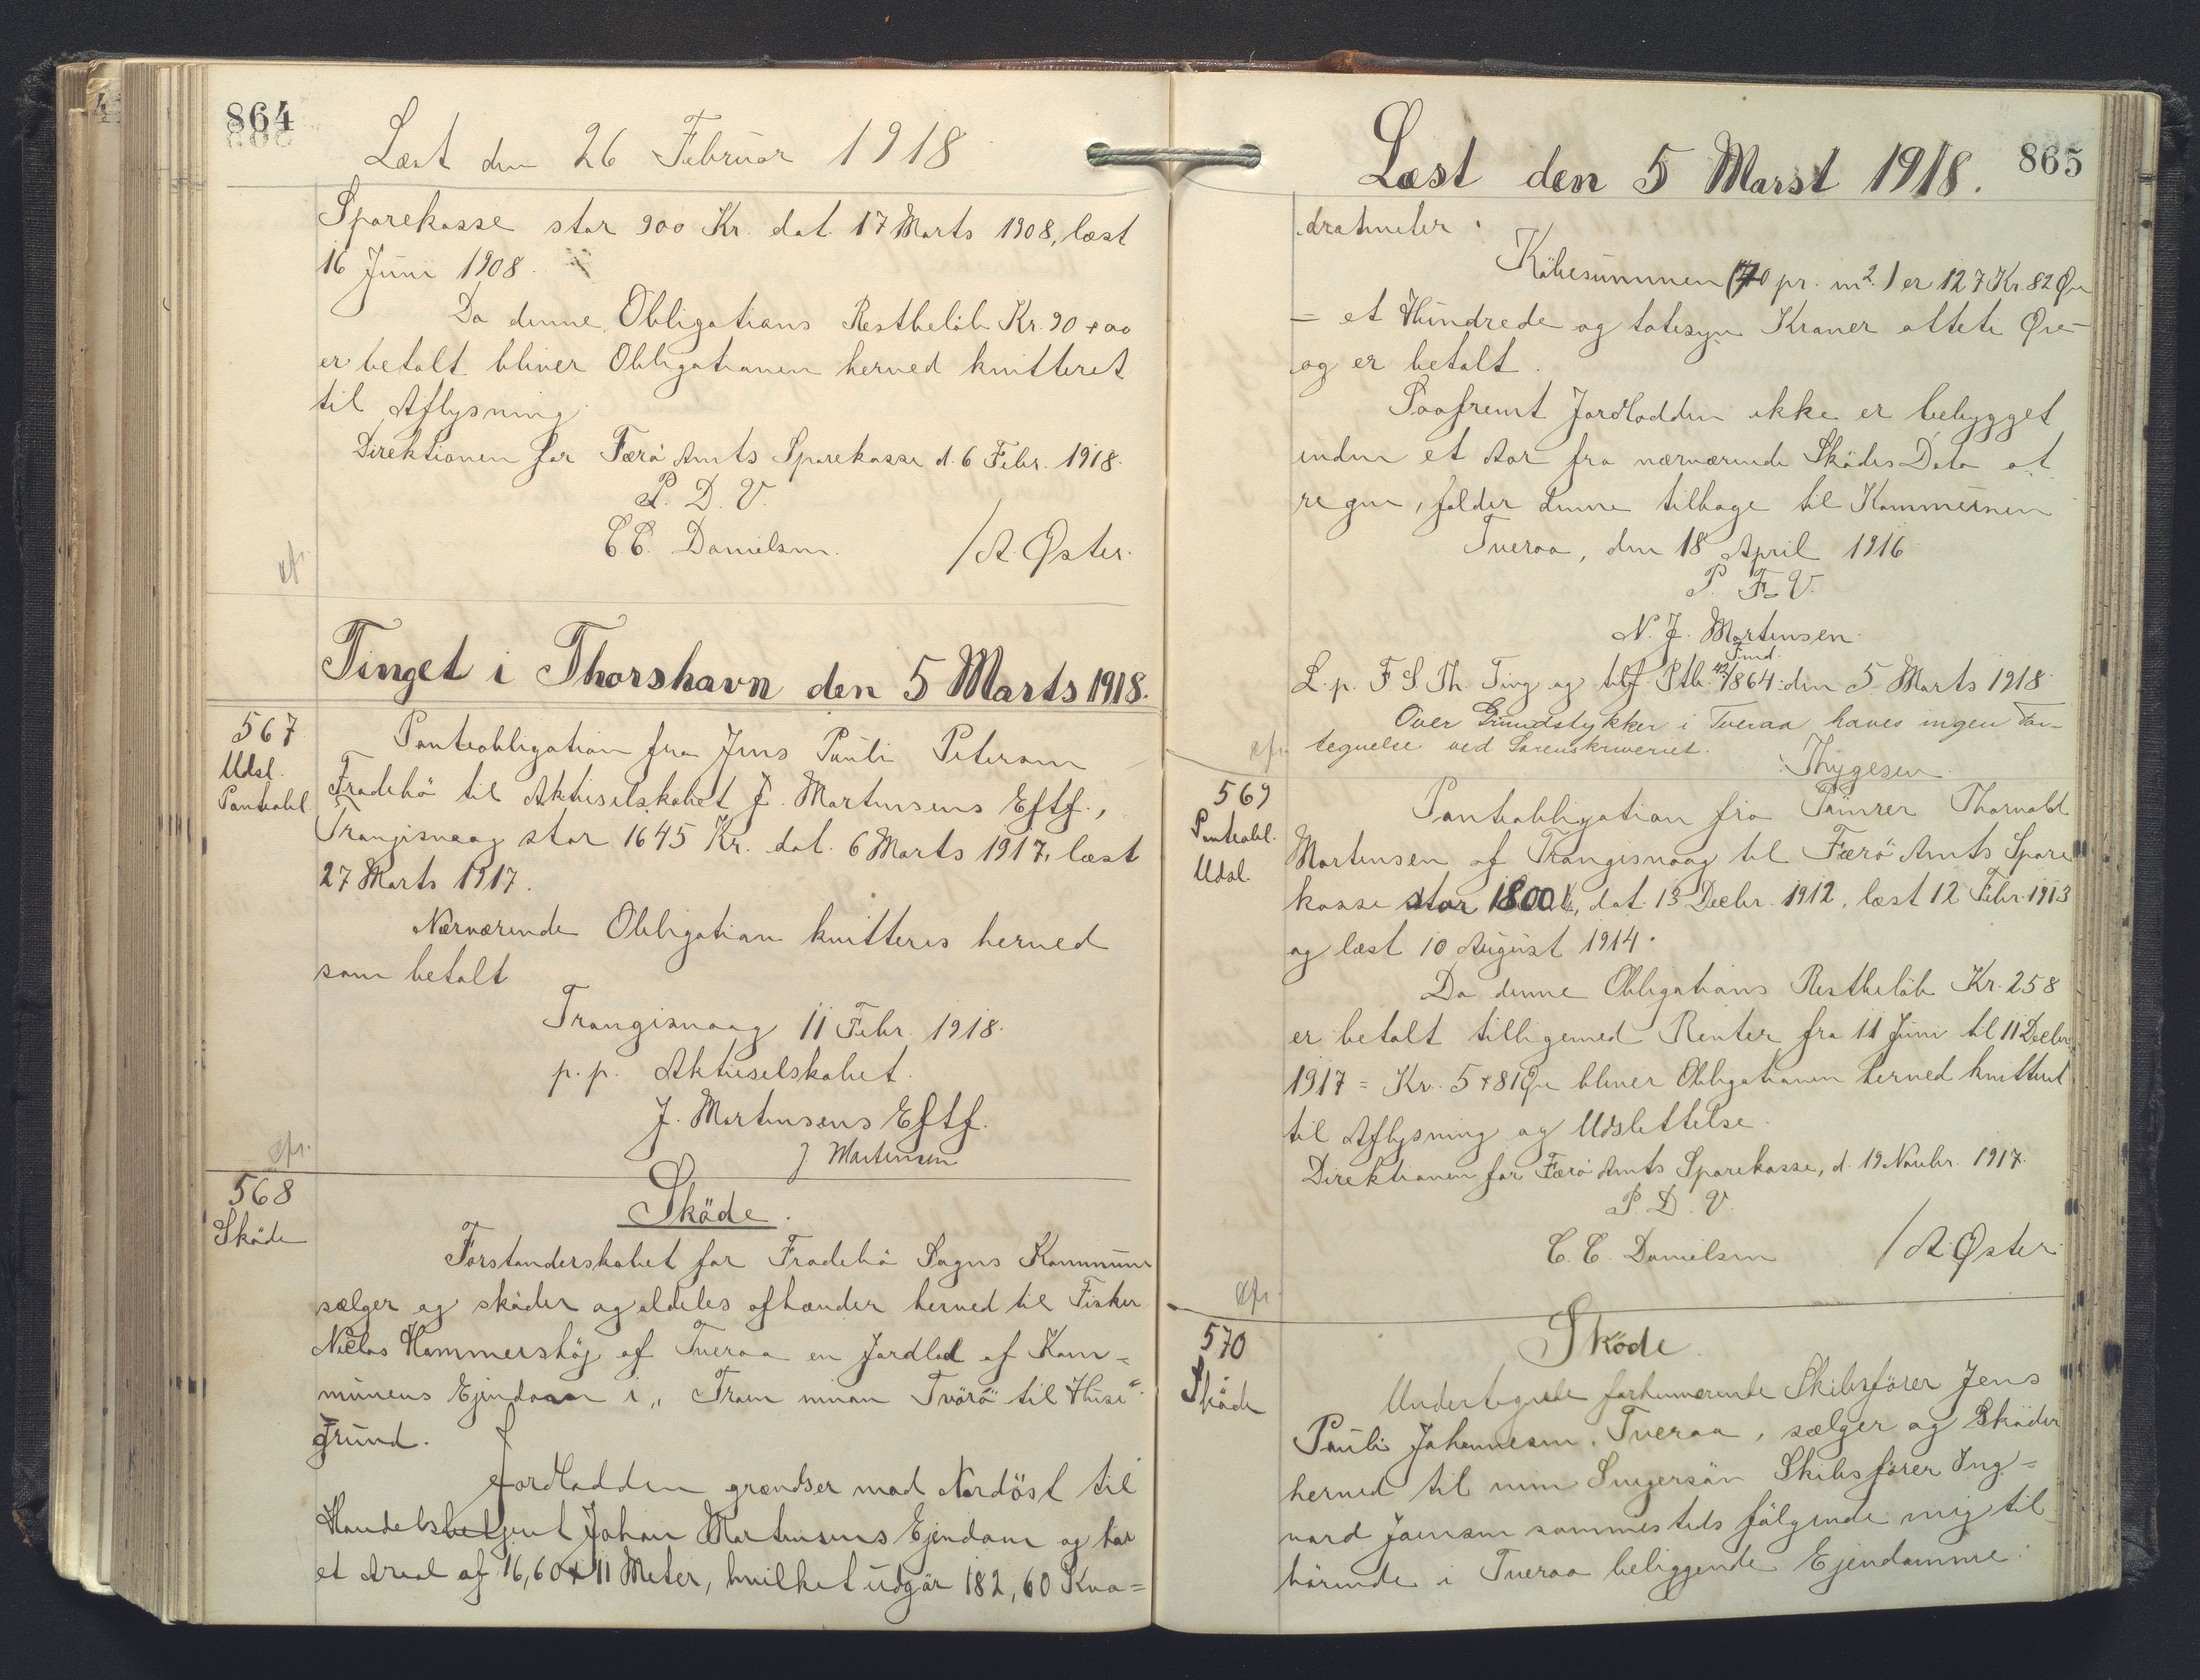 864
Læst den 26 Februar 1918
Sparekasse stor 900 Kr. dat. 17 Marts 1908, læst
16 Juni 1908.
Da denne Obligations Restbelöb Kr. 90 + 00
er betalt bliver Obligationen herved kvitteret
til Aflysning
Direktionen for Færö Amts Sparekasse d. 6 Febr. 1918.
P. D. V.
C C. Danielsen. / A. Øster.
cfr.
Tinget i Thorshavn den 5 Marts 1918.
567
Udsl.
Panteobl.
Panteobligation fra Jens Pauli Petersen
Frodebö til Aktieselskabet J. Mortensens Eftf.,
Trangisvaag stor 1645 Kr. dat. 6 Marts 1917, læst
27 Marts 1917.
Nærværende Obligation kvitteres herved
som betalt
Trangisvaag 11 Febr. 1918.
p. p. Aktieselskabet.
J. Mortensens Eftf.
J Mortensen
cfr.
568
Sköde
Sköde.
Forstanderskabet for Frodebö Sogns Kommune
sælger og sköder og aldeles afhænder herved til Fisker
Niclas Hammershöj af Tveraa en Jordlod af Kom=
munens Ejendom i „ Tram innan Tvörö til Husi"
grund.
Jordlodden grændser mod Nordöst til
Handelsbetjent Johan Mortensens Ejendom og har
et Areal af 16,60 x 11 Meter, hvilket udgör 182,60 Kva=
Læst den 5 Marst 1918.
865
dratmeter.
Köbesummen (70 pr. m².) er 127 Kr. 82 Øre
= et Hundrede og totisyv Kroner otteti Øre =
og er betalt.
Saafremt Jordlodden ikke er bebygget
inden et Aar fra nærværende Sködes Dato at
regne, falder denne tilbage til Kommunen
Tveraa, den 18 April 1916
P. F. V.
N. J. Mortensen.
L. p. F S. Th. Ting og tilf. Ptb. 42/864 den 5 Marts 1918.
Over Grundstykker i Tveraa haves ingen For-
tegnelse ved Sorenskriveriet.
Thygesen
cfr.
569
Panteobl.
Udsl.
Panteobligation fra Tömrer Thorvald
Mortensen af Trangisvaag til Færö Amts Spare
kasse stor 1800 Kr, dat. 13 Decbr. 1912, læst 12 Febr. 1913
og læst 10 August 1914.
Da denne Obligations Restbelöb Kr. 258
er betalt tilligemed Renter fra 11 Juni til 11 Decbr.
1917 = Kr. 5 + 81 Øre bliver Obligationen herved kvitteret
til Aflysning og Udslettelse.
Direktionen for Færö Amts Sparekasse, d. 19 Novbr. 1917.
P D. V.
C. C. Danielsen / A. Øster.
cfr.
570
Sköde
Sköde.
Undertegnede forhenværende Skibsförer Jens
Pauli Johannesen, Tveraa, sælger og Sköder
herved til min Svigersön Skibsförer Ing=
vard Joensen sammesteds fölgende mig til
hörende i Tveraa beliggende Ejendomme: